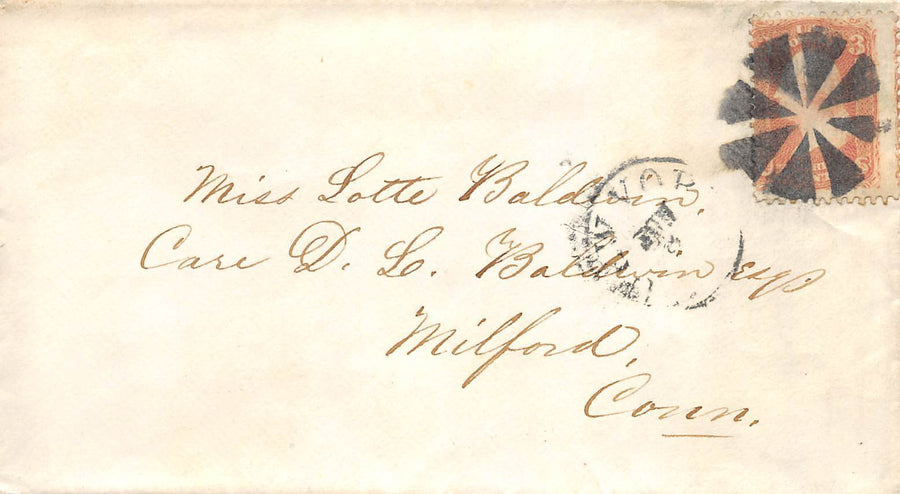 3
Miss Lotte Baldwin,
Care D. L. Baldwin Esq
Milford,
Conn.